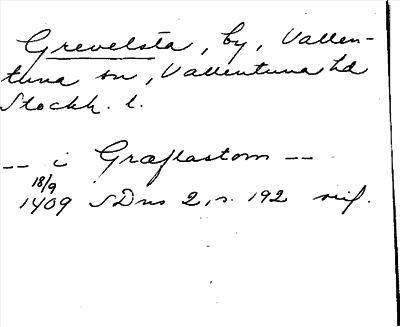 Grevelsta, by, Vallen-
tuna sn, Vallentuna hd
Stockh. l.
-- i Graflastom --
18/9
1409 SDns 2, s. 192